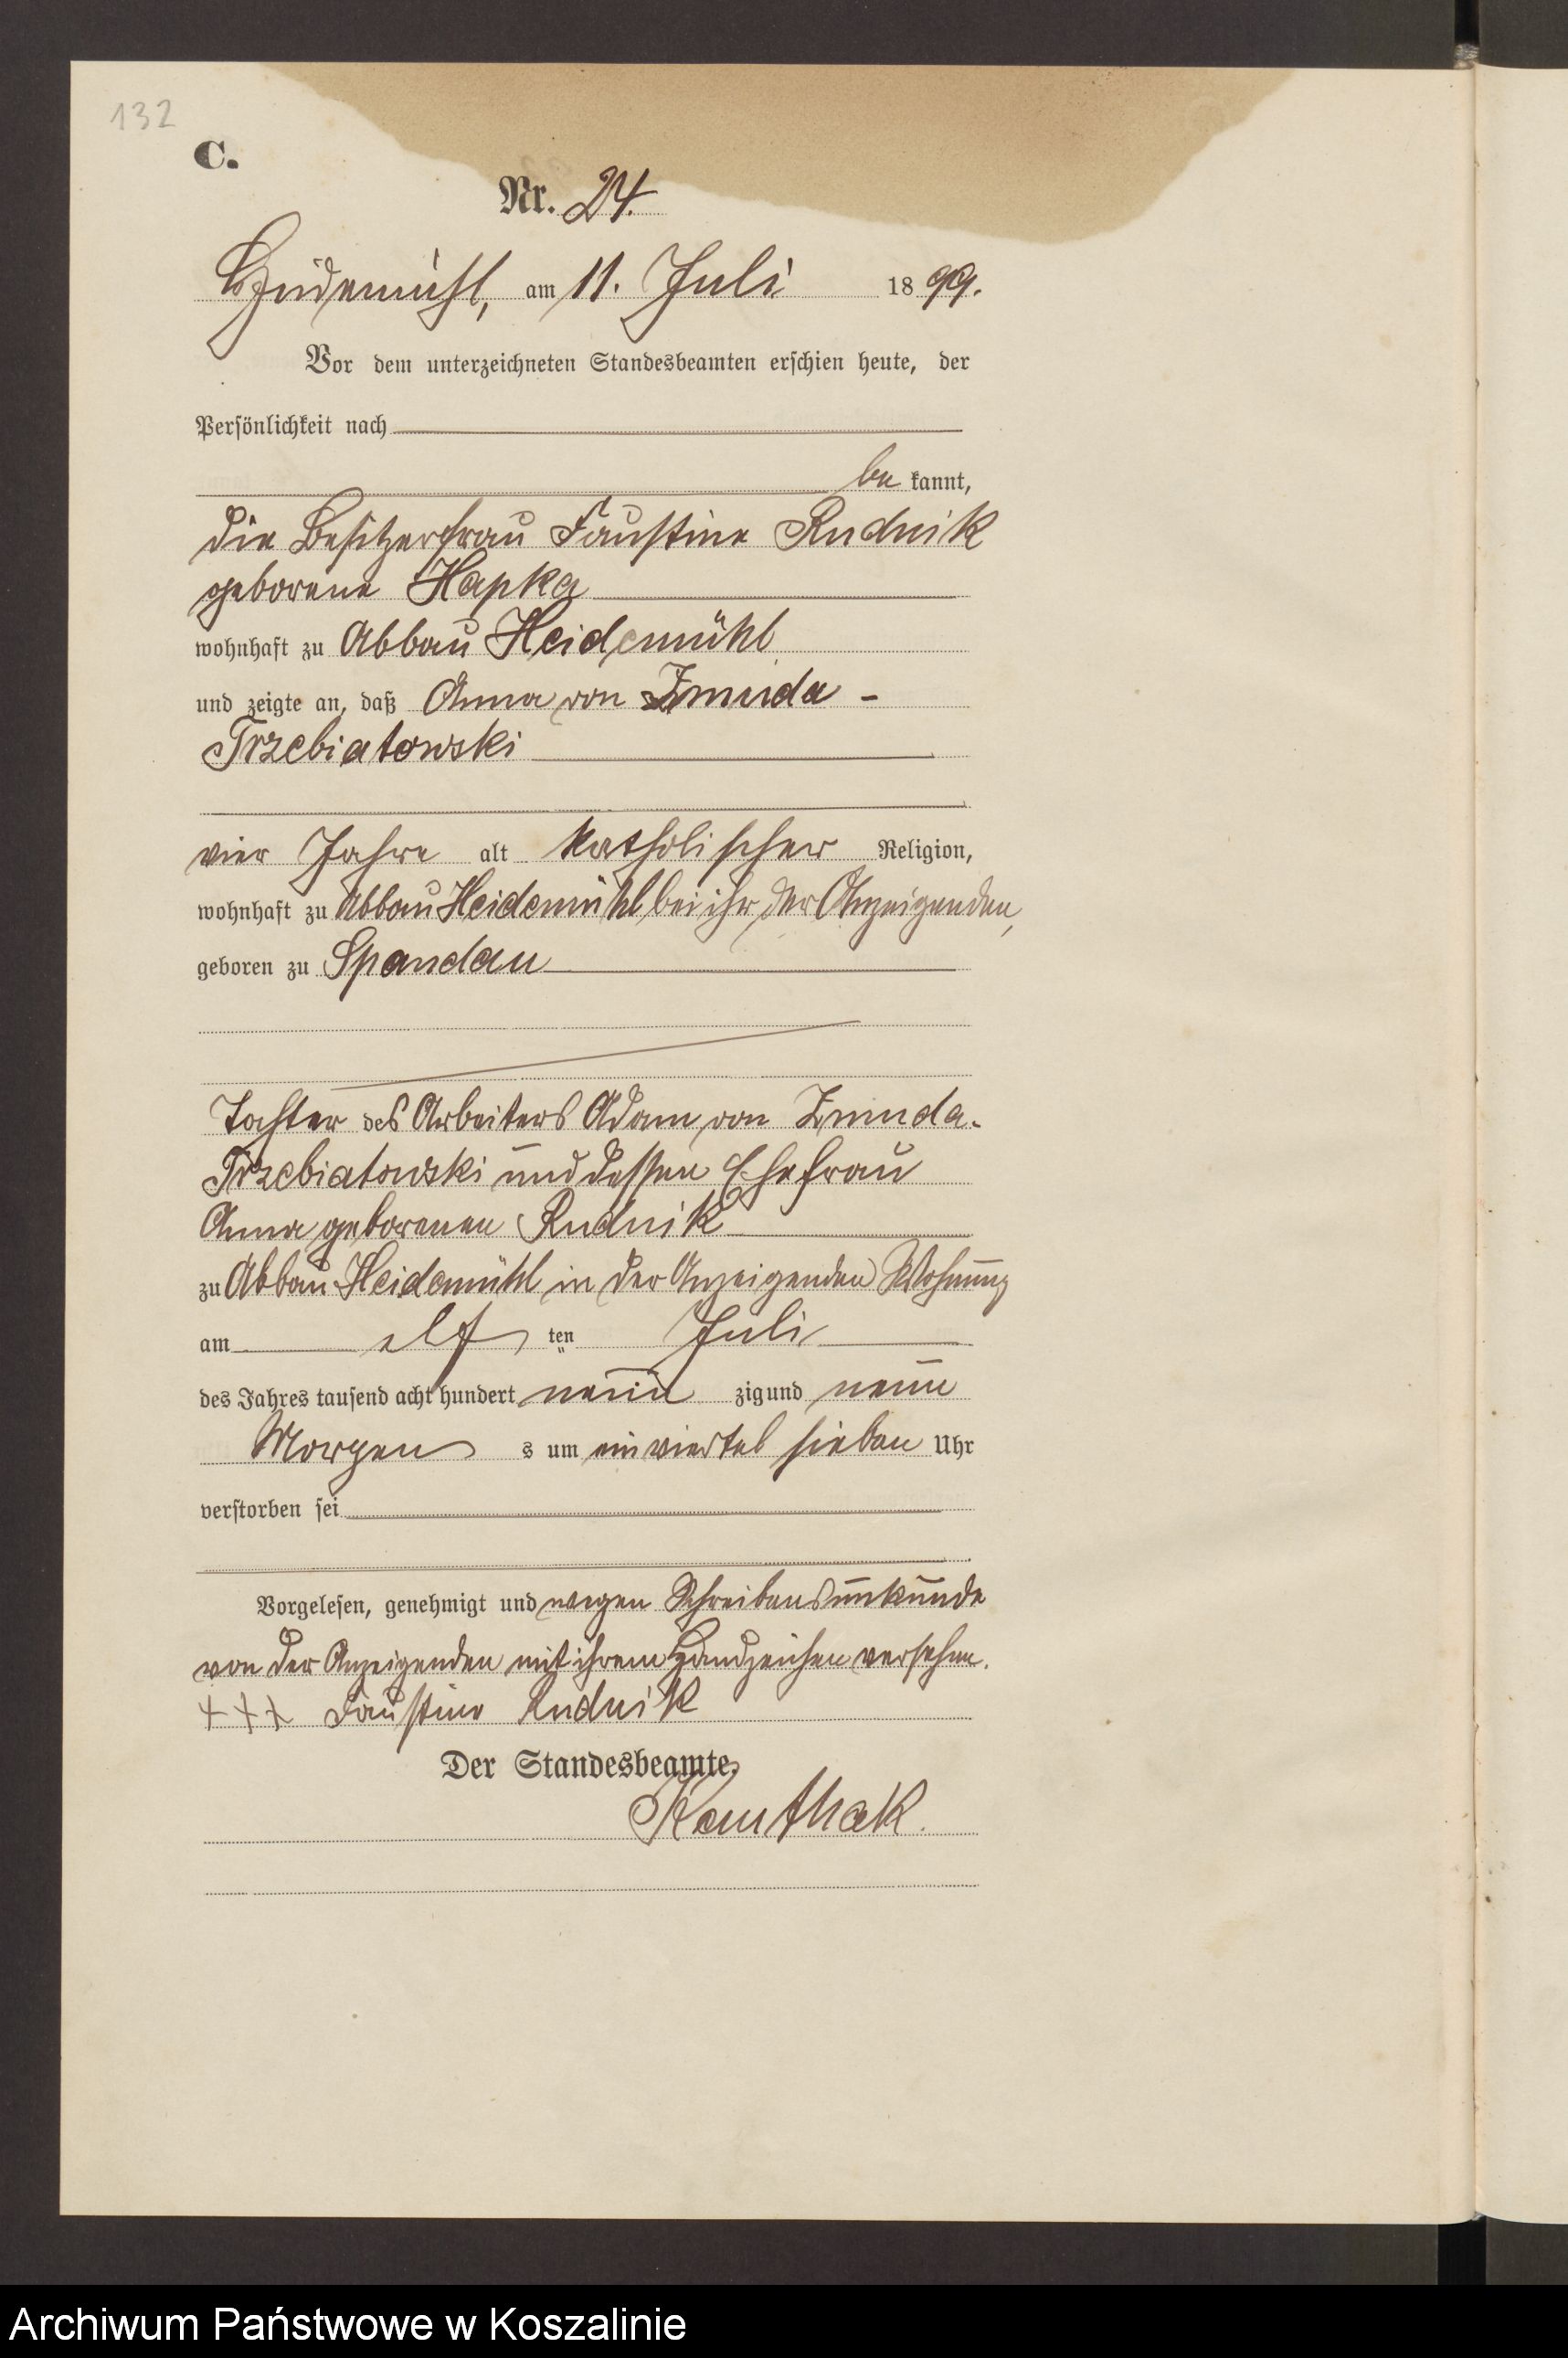 132
C.
Nr. 24.
am 11. Juli 1899.
Vor dem unterzeichneten Standesbeamten erschien heute, der
Persönlichkeit nach
be kannt,
die Besitzerfrau Faustine Rudnik
geborene Hapka
wohnhaft zu Abbau Heidemühl
und zeigte an, daß Anna von Zmuda -
Trzebiatowski
vier Jahre alt katholischer Religion,
wohnhaft zu Abbau Heidemühl bei ihr der Anzeigenden,
geboren zu Spandau
Tochter des Arbeiters Adam von Zmuda-
Trzebiatowski und dessen Ehefrau
Anna geborenen Rudnik
zu Abbau Heidemühl in der Anzeigenden Wohnung
am elf ten Juli
des Jahres tausend acht hundert neun zig und neun
Morgen s um ein viertel sieben Uhr
verstorben sei
Vorgelesen, genehmigt und wegen Schreibensunkunde
von der Anzeigenden mit ihrem Handzeichen versehen.
+++ Faustine Rudnik
Der Standesbeamte.
Archiwum Państwowe w Koszalinie